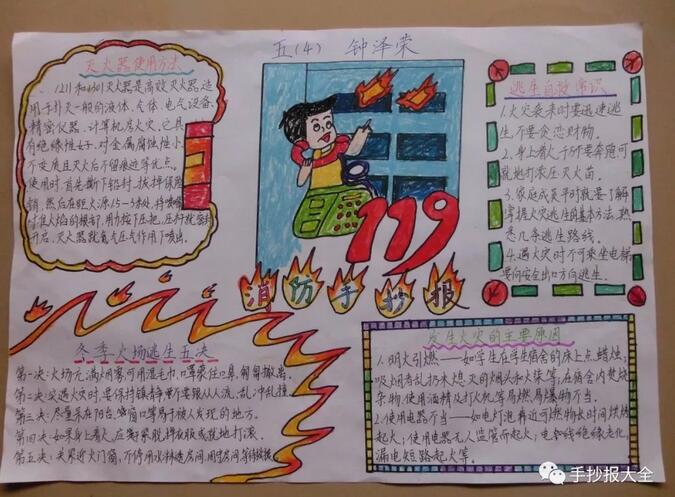 五(4) 钟泽荣
灭火器使用方法
1211和1301灭火器是高效灭火器适
用于扑灭一般的液体、气体、电气设备、
精密仪器、计算机房火灾,它具
有绝缘性好,对金属腐蚀性小、
不变质且灭火后不留痕迹等优点。
使用时首先撕下铅封,拔掉保险
销,然后在距火源1.5-3处,将喷嘴
对准火焰的根部,用力按下压把,压
开启,灭火器就氮气压气作用下喷出。
119
消防手抄报
逃生自救常识
1.火灾袭来时要迅速逃
生不要贪恋财物。
2.身上着火,千万不要奔跑可
就地打滚压灭火苗。
3.家庭成员平时就要了解
掌握火灾逃生的基本方法,熟
悉几条逃生路线。
4.遇火灾时不可乘坐电梯
要向安全出口方向逃生。
冬季火场逃生五决
第一决:火场充满烟雾可用湿毛巾、口罩蒙住口鼻,匍匐撤离。
第二决:突遇火灾时,要保持镇静 不要跟从人流、乱冲乱撞。
第三决:尽量呆在阳台、窗口等易于被人发现的地方。
第四决:如果身上着火,应 脱掉衣服或就地打滚。
第五决:关紧近火门窗,不停用水 房间,
发生火灾的主要原因
1.明火引燃——如学生在学生宿舍的床上点蜡烛;
吸烟者乱扔未熄灭的烟头和火柴等;在宿舍内焚烧
杂物,使用油精及打火机等易燃易爆物不当。
2.使用电器不当——如电灯泡靠近可燃物长时间烘烤
起火;使用电器无人监管而起火;电套线绝缘老化;
漏电短路起火等。
手抄报大全